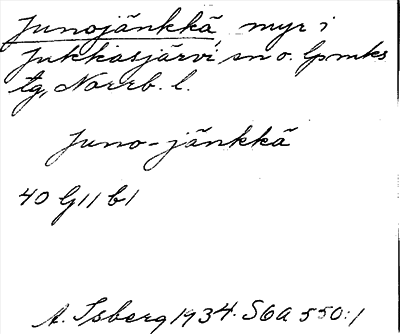 Junojänkkä, myr i
Jukkasjärvi sn o. lpmks
tg, Norrb. l.
Juno-jänkkä
40 G11 b1
A. Isberg 1934. S6a 550:1